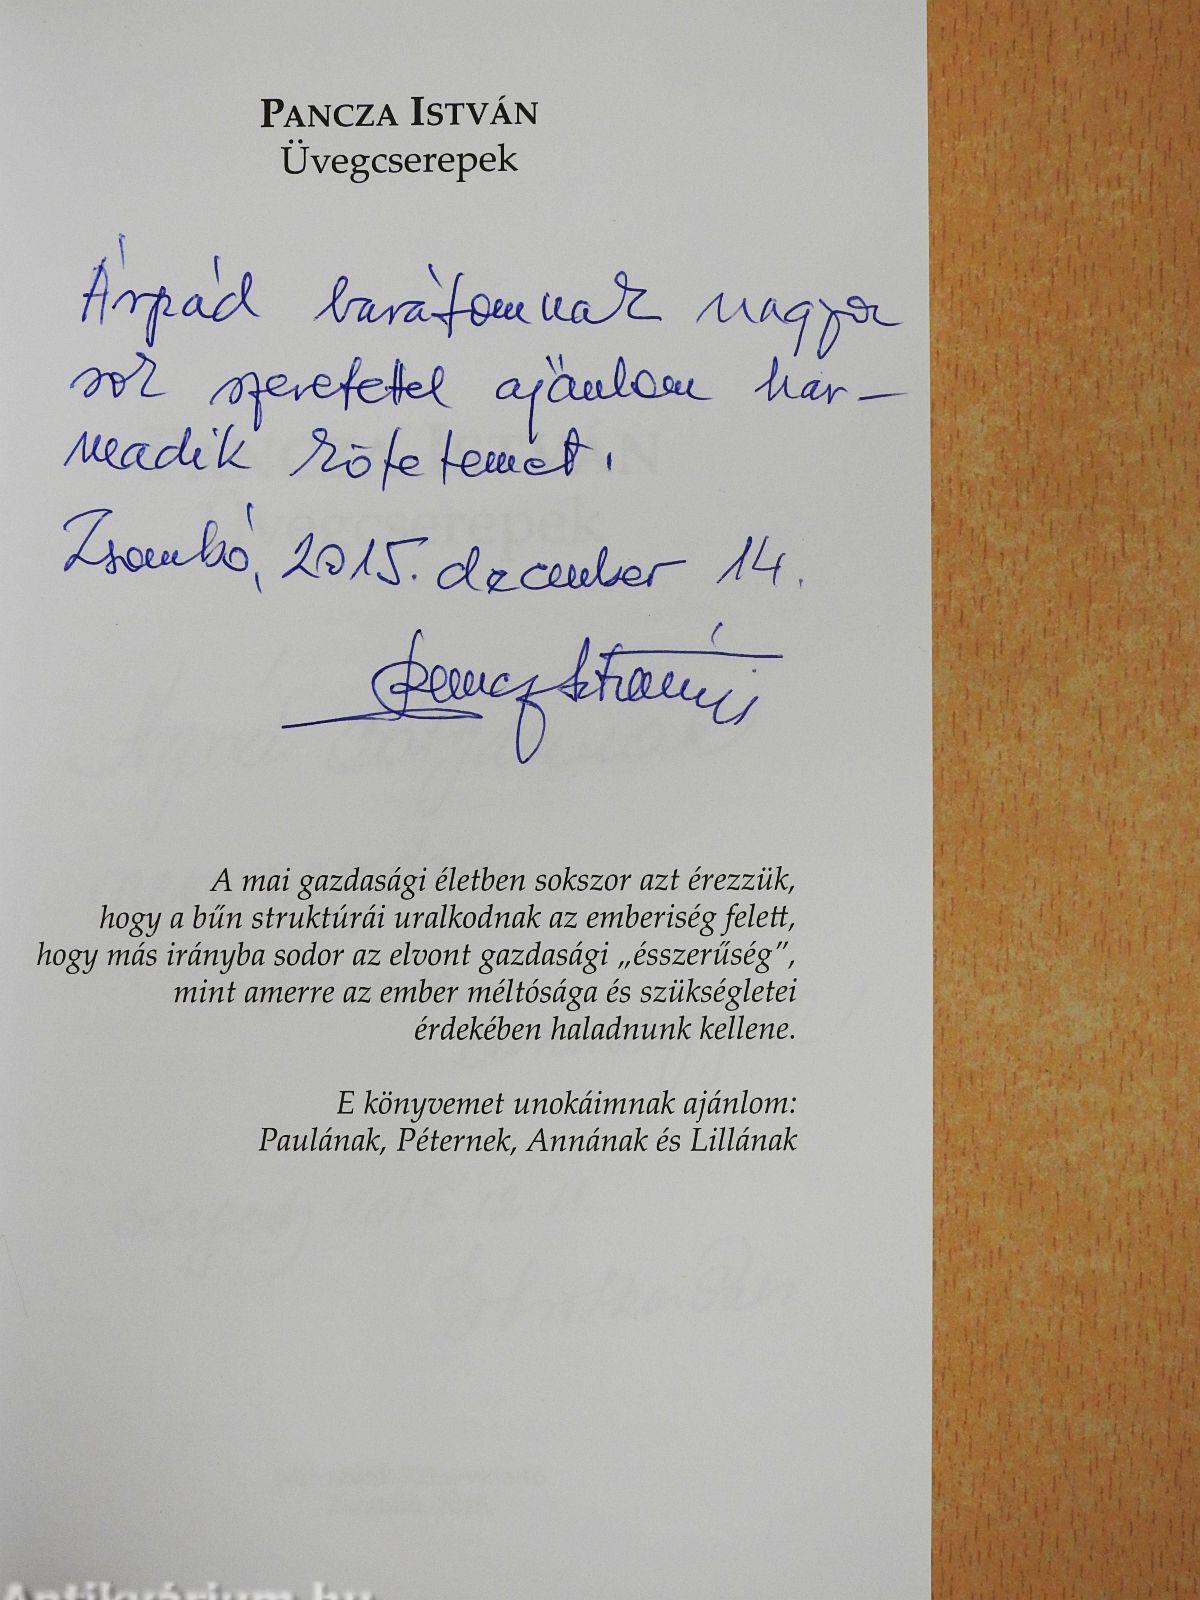 PANCZA ISTVÁN
Üvegcserepek
Árpád barátomnak nagyon
sok szeretettel ajánlom har–
madik kötetemet.
Zsombó, 2015. december 14.
Pancza István
A mai gazdasági életben sokszor azt érezzük,
hogy a bűn struktúrái uralkodnak az emberiség felett,
hogy más irányba sodor az elvont gazdasági „ésszerűség”,
mint amerre az ember méltósága és szükségletei
érdekében haladnunk kellene.
E könyvemet unokáimnak ajánlom:
Paulának, Péternek, Annának és Lillának
Antikvárium.hu